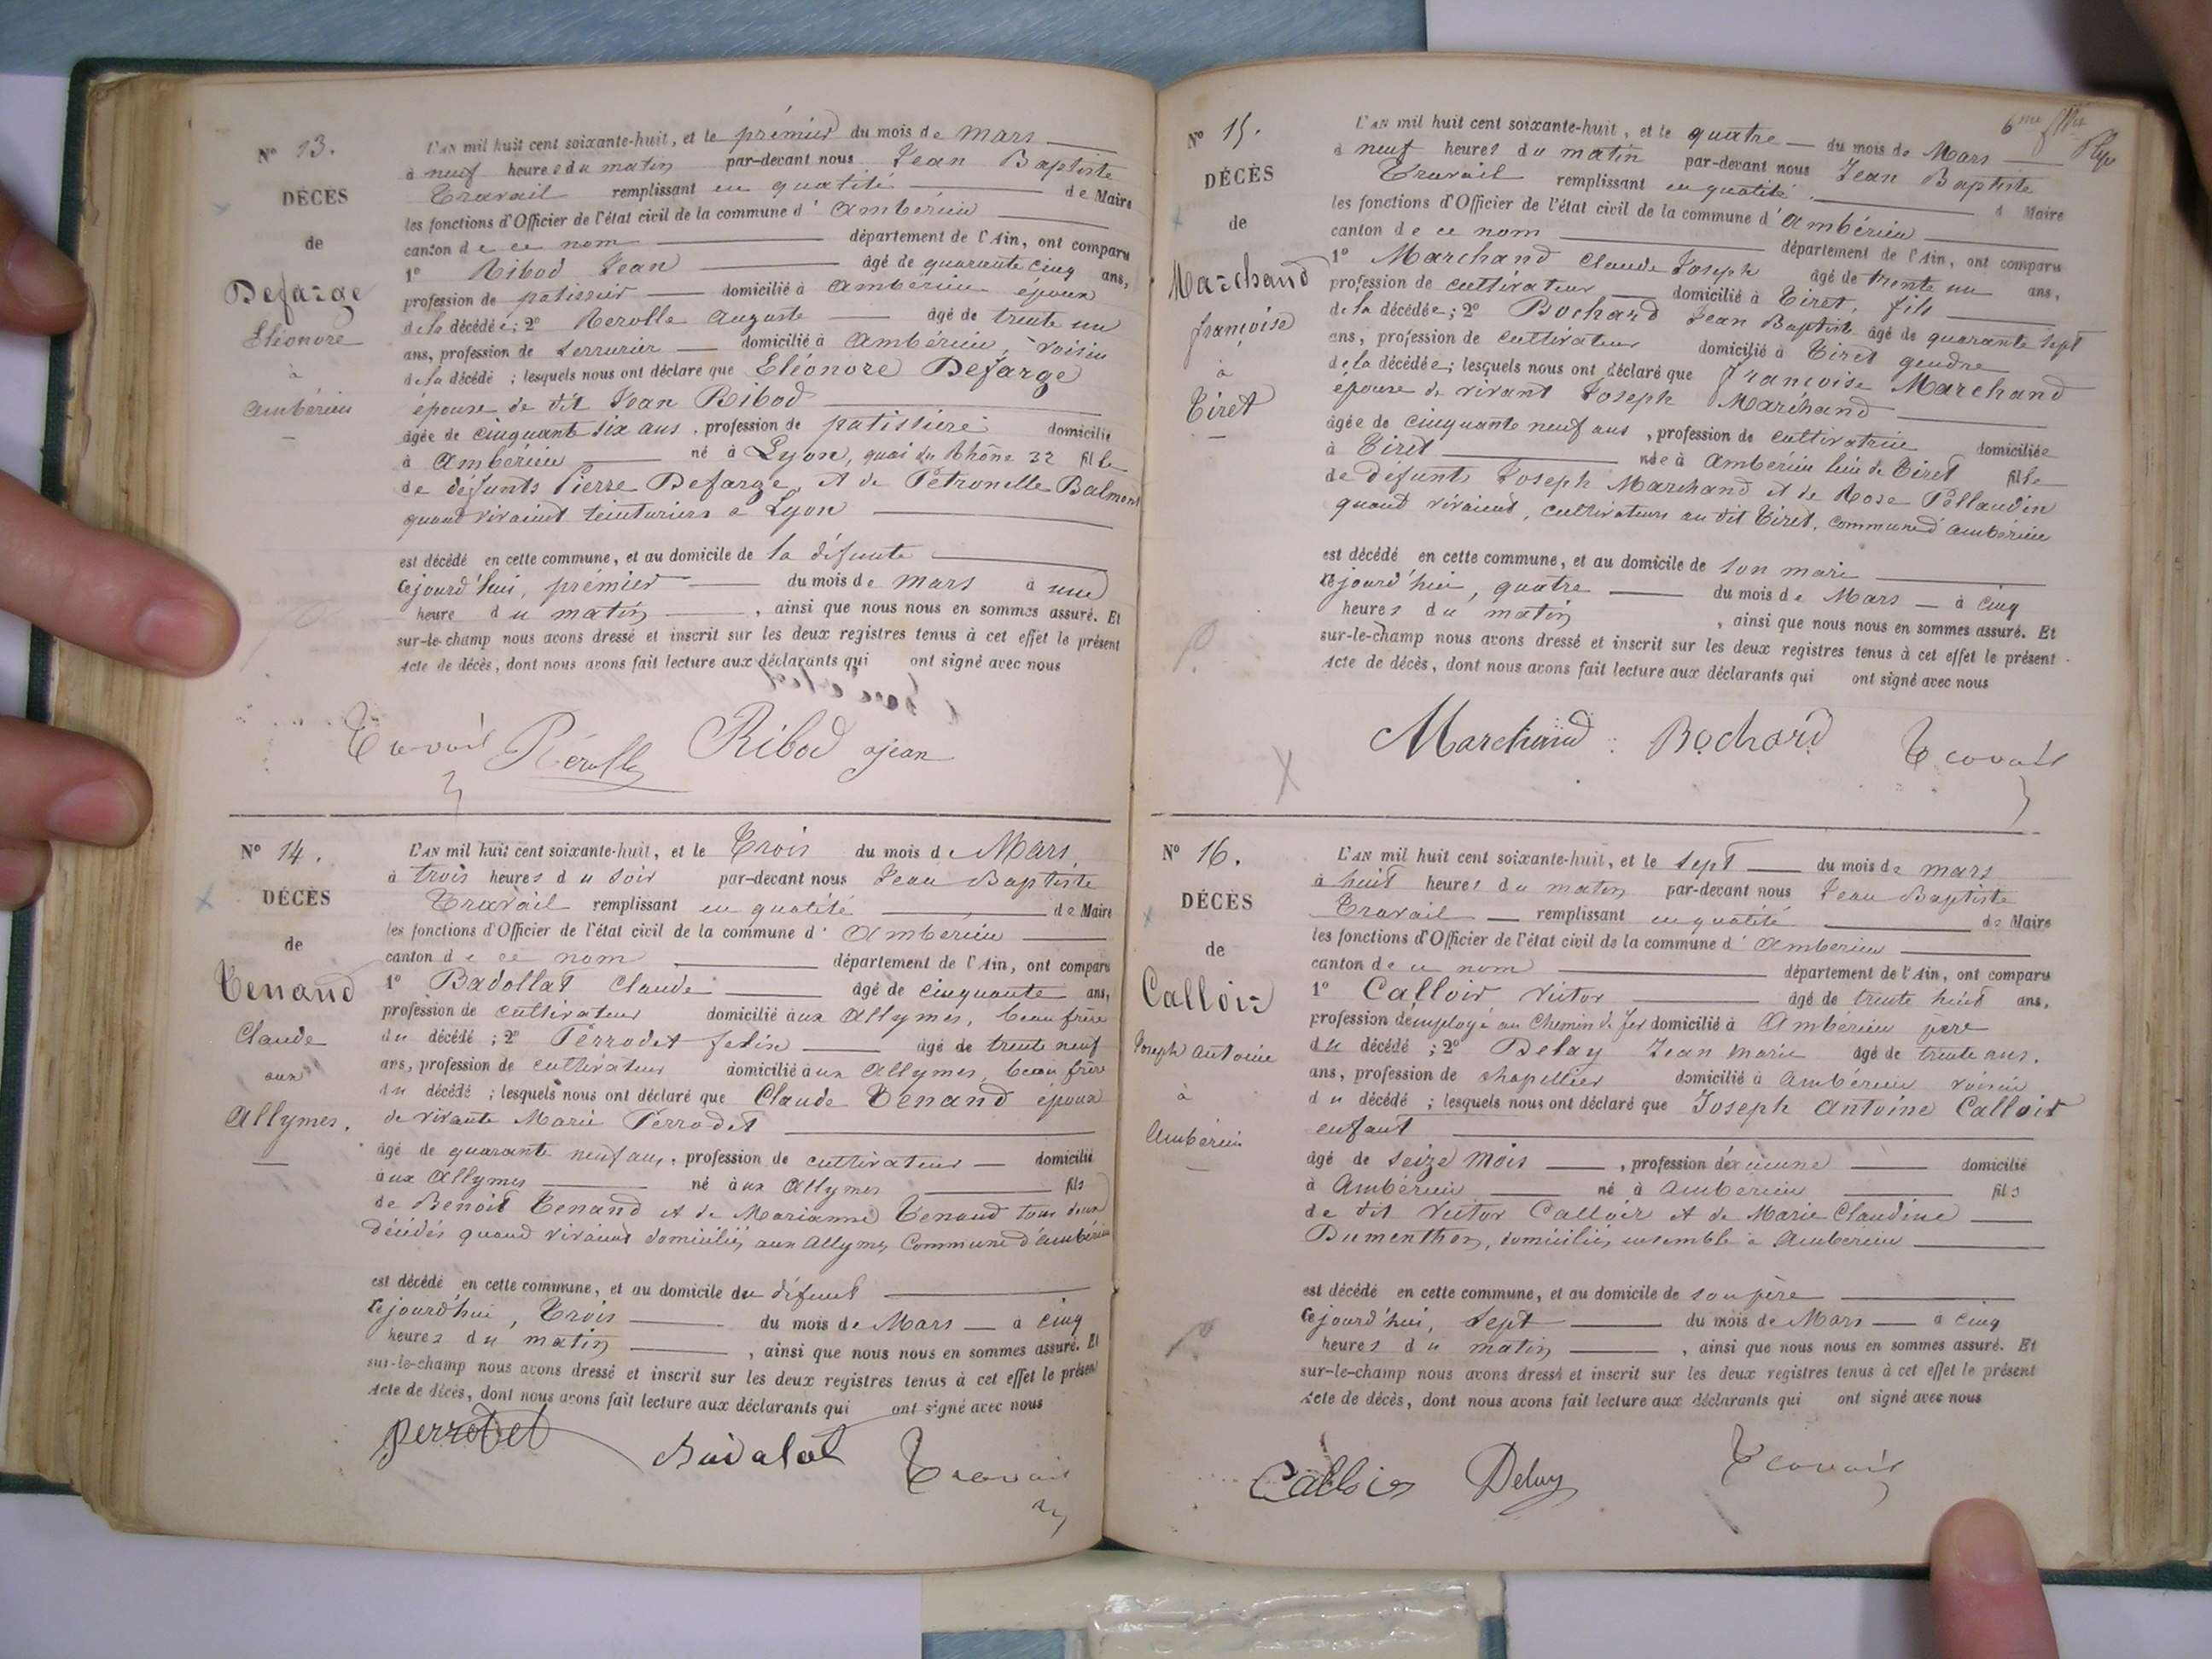 N° 13.
DÉCÈS
de
Defarge
Eléonore
à
Ambérieu
L'AN mil huit cent soixante-huit, et le prémier du mois de Mars
à neuf heures du matin par-devant nous Jean Baptiste
Travail remplissant en qualité de Maire
les fonctions d'Officier de l'état civil de la commune d'Ambérieu
canton de ce nom département de l'Ain, ont comparu
1° Ribod Jean âgé de quarante cinq ans,
profession de patissier domicilié à Ambérieu époux
de la décédée; 2° Rerolle Auguste âgé de trente un
ans, profession de serrurier domicilié à Ambérieu, voisin
de la décédé ; lesquels nous ont déclaré que Eléonore Defarge
épouse de dit Jean Ribod
âgée de cinquante six ans, profession de patissière domicilié
à Ambérieu né à Lyon, quai du Rhône 32 fille
de défunts Pierre Defarge, et de Pétronille Balmont
quand vivaient teinturiers à Lyon
est décédé en cette commune, et au domicile de la défunte
cejourd'hui, prémier du mois de Mars à une
heure du matin, ainsi que nous nous en sommes assuré. Et
sur-le-champ nous avons dressé et inscrit sur les deux registres tenus à cet effet le présent
Acte de décès, dont nous avons fait lecture aux déclarants qui ont signé avec nous
Travail Rérolle Ribod jean
N° 14.
DÉCÈS
de
Tenand
Claude
aux
Allymes.
L'AN mil huit cent soixante-huit, et le Trois du mois de Mars,
à trois heures du soir par-devant nous Jean Baptiste
Travail remplissant en qualité de Maire
les fonctions d'Officier de l'état civil de la commune d'Ambérieu
canton de ce nom département de l'Ain, ont comparu
1° Badollat Claude âgé de cinquante ans,
profession de cultivateur domicilié aux Allymes, beau frère
du décédé ; 2° Perrodet felix âgé de trente neuf
ans, profession de cultivateur domicilié aux Allymes, beau frère
du décédé ; lesquels nous ont déclaré que Claude Tenand époux
de vivante Marie Perrodet
âgé de quarante neuf ans, profession de cultivateur domicilié
aux Allymes né aux Allymes fils
de Benoit Tenand et de Marianne Tenand tous deux
décédés quand vivaient domiciliés aux Allymes Commune d'Ambérieu
est décédé en cette commune, et au domicile du défunt
cejourd'hui, Trois du mois de Mars à cinq
heures du matin, ainsi que nous nous en sommes assuré. Et
sur-le-champ nous avons dressé et inscrit sur les deux registres tenus à cet effet le présent
Acte de décès, dont nous avons fait lecture aux déclarants qui ont signé avec nous
perrodet Badalat Travail
6me
N° 15.
DÉCÈS
de
Marchand
françoise
à
Tiret
L'AN mil huit cent soixante-huit, et le quatre du mois de Mars
à neuf heures du matin par-devant nous Jean Baptiste
Travail remplissant en qualité d Maire
les fonctions d'Officier de l'état civil de la commune d'Ambérieu
canton de ce nom département de l'Ain, ont comparu
1° Marchand Claude Joseph âgé de trente un ans,
profession de cultivateur domicilié à Tiret, fils
de la décédée; 2° Bochard Jean Baptiste âgé de quarante sept
ans, profession de cultivateur domicilié à Tiret gendre
de la décédée; lesquels nous ont déclaré que françoise Marchand
épouse de vivant Joseph Marchand
âgée de cinquante neuf ans, profession de cultivatrice domiciliée
à Tiret née à Ambérieu lieu de Tiret fille
de défunts Joseph Marchand et de Rose Pellaudin
quand vivaient, cultivateurs au dit Tiret, commune d'Ambérieu
est décédé en cette commune, et au domicile de son mari
cejourd'hui, quatre du mois de Mars à cinq
heures du matin, ainsi que nous nous en sommes assuré. Et
sur-le-champ nous avons dressé et inscrit sur les deux registres tenus à cet effet le présent
Acte de décès, dont nous avons fait lecture aux déclarants qui ont signé avec nous
Marchand Bochard Travail
N° 16.
DÉCÈS
de
Calloir
Joseph Antoine
à
Ambérieu
L'AN mil huit cent soixante-huit, et le sept du mois de mars
à huit heures du matin par-devant nous Jean Baptiste
Travail remplissant en qualité de Maire
les fonctions d'Officier de l'état civil de la commune d'Ambérieu
canton de ce nom département de l'Ain, ont comparu
1° Calloir Victor âgé de trente huit ans,
profession d'employé au Chemin de fer domicilié à Ambérieu père
du décédé ; 2° Delay Jean Marie âgé de trente
ans, profession de chapellier domicilié à Ambérieu voisin
du décédé ; lesquels nous ont déclaré que Joseph Antoine Calloir
enfant
âgé de seize mois, profession d'aucune domicilié
à Ambérieu né à Ambérieu fils
de dit Victor Calloir et de Marie Claudine
Dumenthon, domiciliés ensemble à Ambérieu
est décédé en cette commune, et au domicile de son père
cejourd'hui, sept du mois de Mars à cinq
heures du matin, ainsi que nous nous en sommes assuré. Et
sur-le-champ nous avons dressé et inscrit sur les deux registres tenus à cet effet le présent
Acte de décès, dont nous avons fait lecture aux déclarants qui ont signé avec nous
Calloir Delay Travail